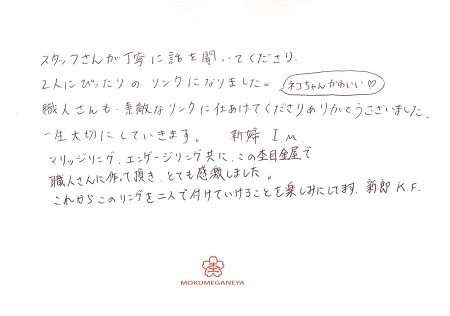 スタッフさんが丁寧に話を聞いてくださり、
2人にぴったりの リングになりました。
ネコちゃんかわいい♡
職人さんも、素敵なリングに仕あげてくださりありがとうございました。
一生大切にしていきます。 新婦 I.M
マリッジリング、エンゲージリング共に、この杢目金屋で
職人さんに作って頂き、とても感激しました。
これからこのリングを二人で付けていけることを楽しみにしてます。新郎 K.F.
杢
MOKUMEGANEYA